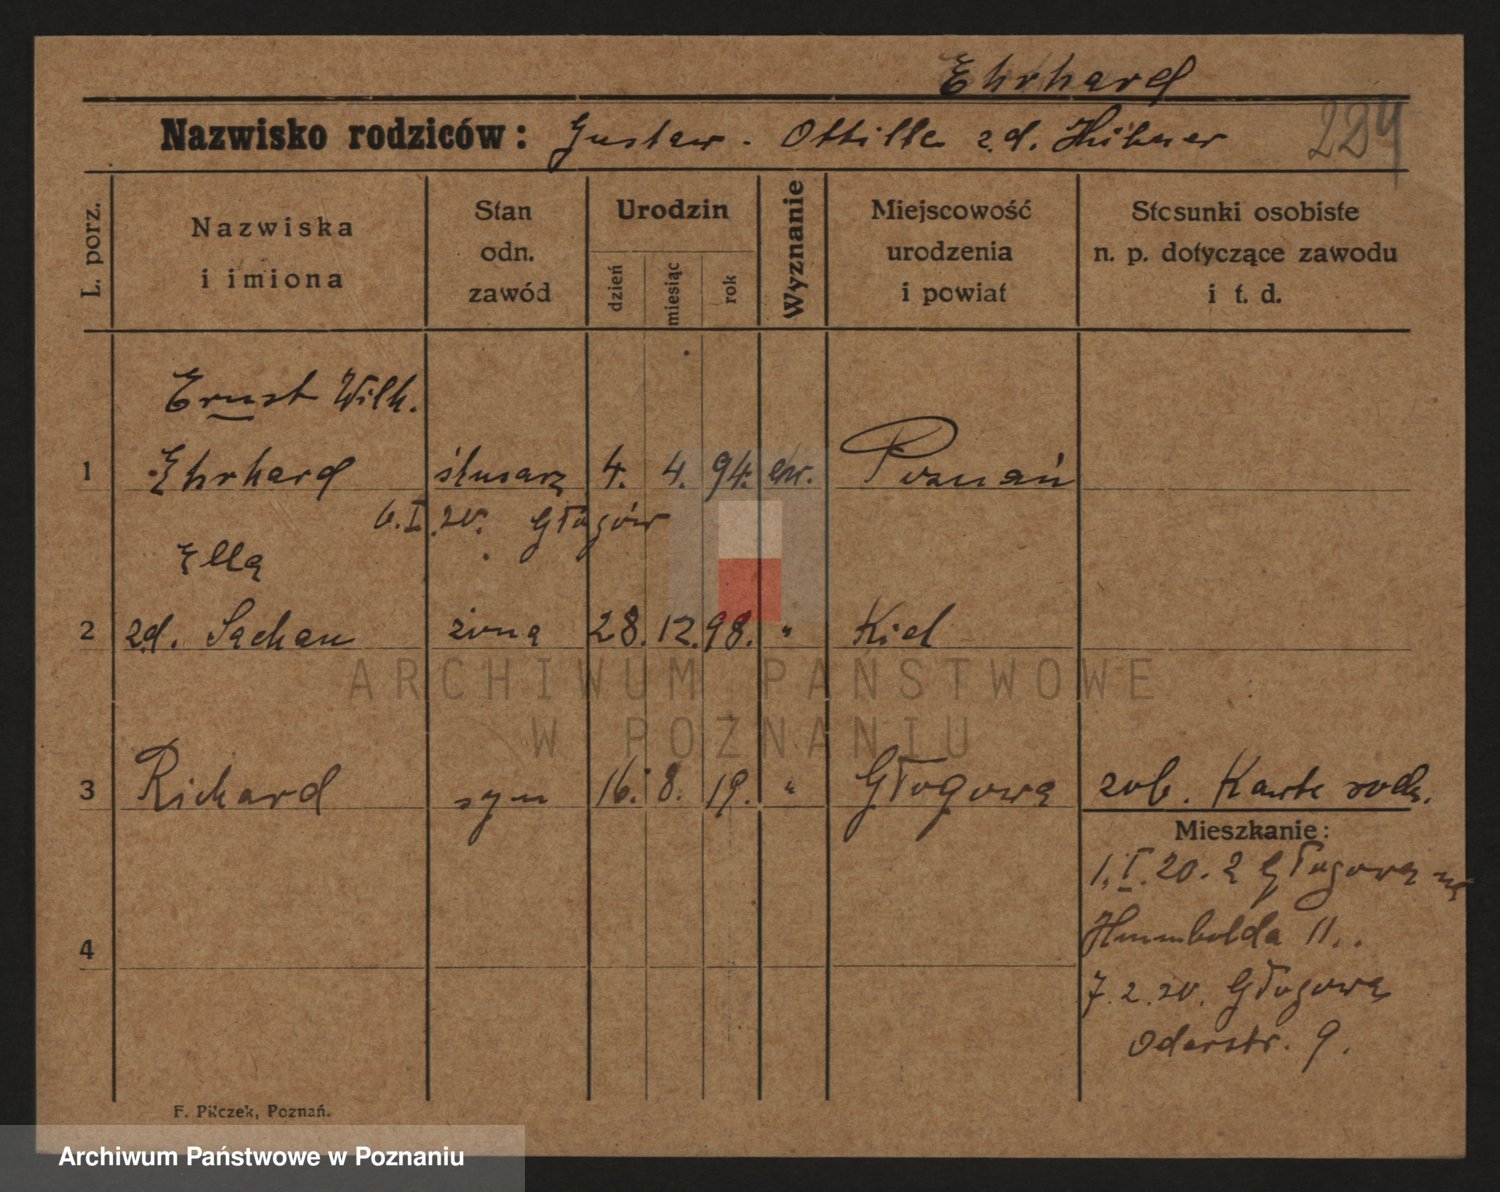 Ehrhard
Nazwisko rodziców: Gustaw - Ottilie z.d. Hübner
L. porz.
Nazwiska i imiona
Stan odn. zawód
Urodzin
dzień
miesiąc
rok
Wyznanie
Miejscowość urodzenia i powiat
Stosunki osobiste n. p. dotyczące zawodu i t. d.
Ernst Wilh.
1 Ehrhard ślusarz 4. 4. 94. ew. Poznań
6.I.20. Głogów
Ella
2 zd. Sachau żona 28. 12. 98. " Kiel
3 Richard syn 16. 8. 19. " Głogowa zob. Karte rodz.
Mieszkanie:
1.I.20. z Głogowa
4 Humbolda 11..
7.2.20. Głogowa
Oderstr. 9.
F. Pilczek, Poznań.
ARCHIWUM PAŃSTWOWE
W POZNANIU
Archiwum Państwowe w Poznaniu